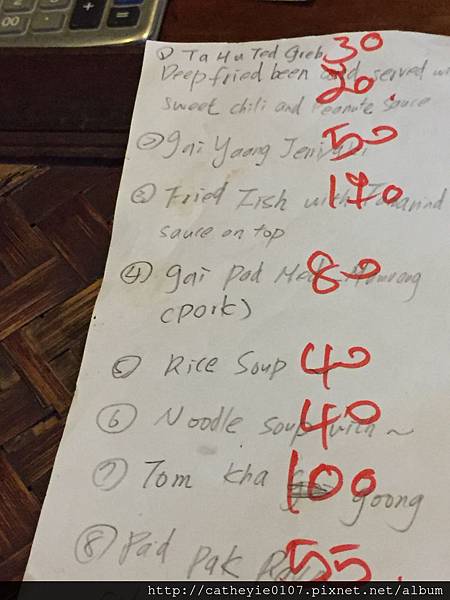 ① Ta Hu Ted Greb 30
Deep fried been served wi
20
sweet chili and Peanute Sauce
② gai Yaang 50
③ Fried Fish with Tamarind 170
sauce on top
④ gai Pad 80
(Pork)
⑤ Rice Soup 40
⑥ Noodle soup with ~ 40
⑦ Tom kha goong 100
⑧ Pad Pak 55
http://catheyie0107.pixnet.net/album